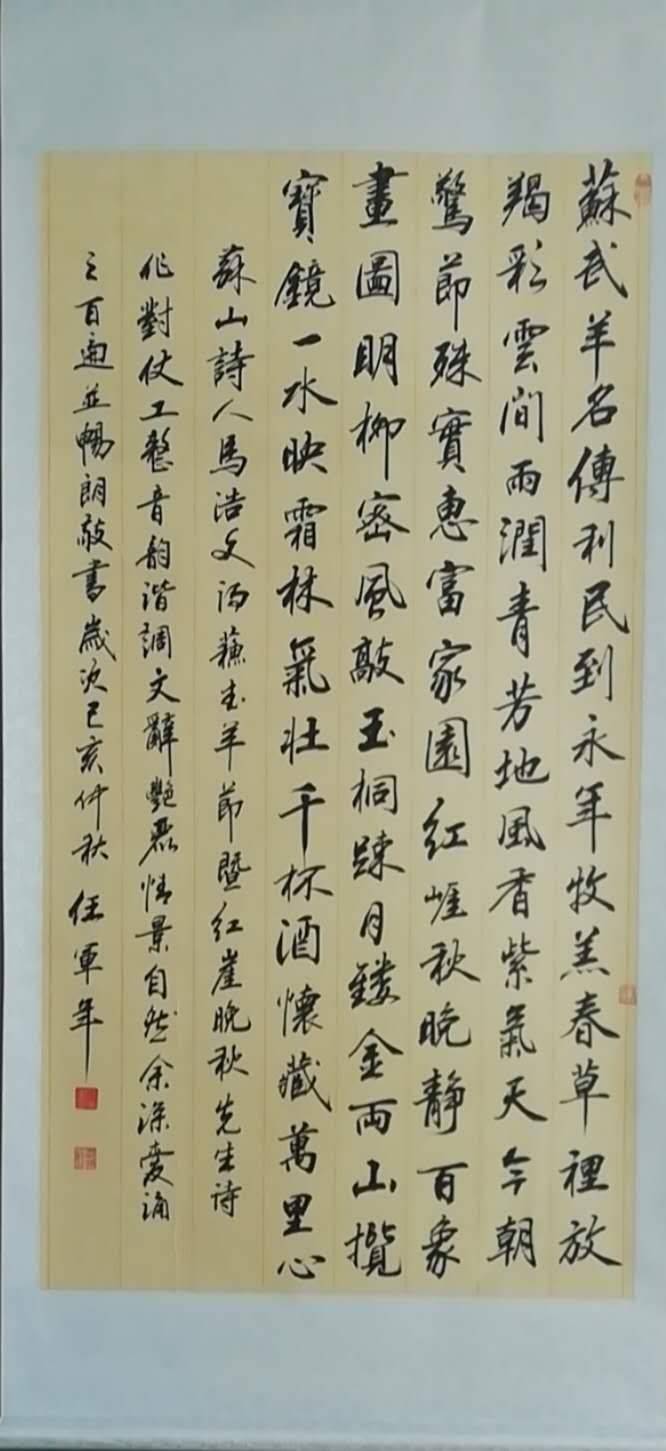 蘇武羊名傳利民到永年牧羔春草裡放
羯彩雲間雨潤青芳地風香紫氣天今朝
驚節殊實惠富家園紅崖秋晚靜百象
畫圖明柳密風敲玉桐疎月鏤金兩山攬
寶鏡一水映霜林氣壯千杯酒懷藏萬里心
蘇山詩人馬浩文語蘇武羊節暨紅崖晚秋先生詩
作對仗工整音韵谐調文辭艷麗情景自然余深愛誦
之百遍並暢朗敲書歲次己亥仲秋 任軍年